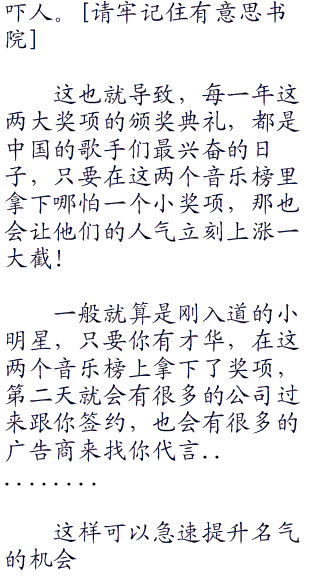 吓人。[请牢记住有意思书
院]
这也就导致，每一年这
两大奖项的颁奖典礼，都是
中国的歌手们最兴奋的日
子，只要在这两个音乐榜里
拿下哪怕一个小奖项，那也
会让他们的人气立刻上涨一
大截！
一般就算是刚入道的小
明星，只要你有才华，在这
两个音乐榜上拿下了奖项，
第二天就会有很多的公司过
来跟你签约，也会有很多的
广告商来找你代言..
........
这样可以急速提升名气
的机会